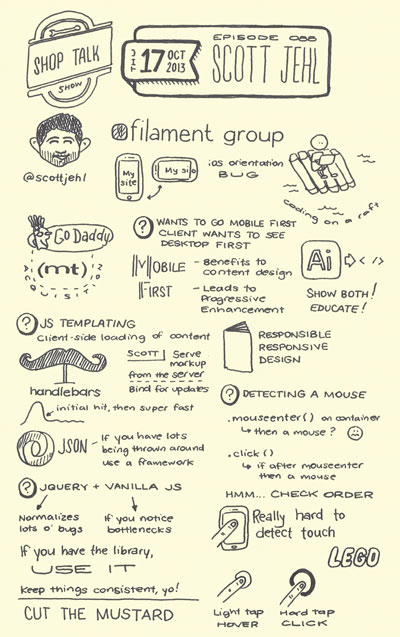 SHOP TALK
SHOW
THU 17 OCT 2013
EPISODE 088
SCOTT JEHL
@scottjehl
filament group
My site
My site
ios orientation
BUG
coding on a raft
Go Daddy
(mt)
? WANTS TO GO MOBILE FIRST
CLIENT WANTS TO SEE
DESKTOP FIRST
MOBILE - Benefits to
content design
FIRST - Leads to
Progressive
Enhancement
Ai </>
SHOW BOTH!
EDUCATE!
? JS TEMPLATING
Client-side loading of content
handlebars
SCOTT Serve
markup
from the server
Bind for updates
initial hit, then super fast
JSON - If you have lots
being thrown around
use a framework
? JQUERY + VANILLA JS
Normalizes
lots o' bugs
If you notice
bottlenecks
If you have the library,
USE IT
Keep things consistent, yo!
CUT THE MUSTARD
RESPONSIBLE
RESPONSIVE
DESIGN
? DETECTING A MOUSE
.mouseenter() on container
then a mouse?
.click()
if after mouseenter
then a mouse
HMM... CHECK ORDER
Really hard to
detect touch
LEGO
Light tap
HOVER
Hard tap
CLICK